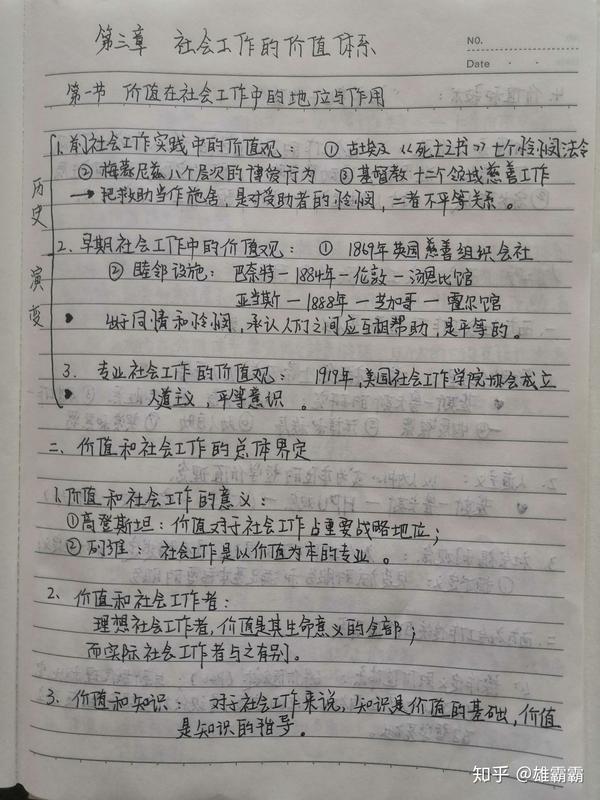 第三章 社会工作的价值体系
NO.
Date
第一节 价值在社会工作中的地位与作用
历史演变
1. 前社会工作实践中的价值观： ① 古埃及《死亡之书》七个怜悯法令
② 梅慕尼兹八个层次的博爱行为 ③ 基督教十二个领域慈善工作
→ 把救助当作施舍，是对受助者的怜悯，二者不平等关系。
2. 早期社会工作中的价值观： ① 1869年英国慈善组织会社
② 睦邻设施： 巴奈特－1884年－伦敦－汤恩比馆
亚当斯－1888年－芝加哥－霍尔馆
出于同情和怜悯，承认人们之间应互相帮助，是平等的。
3. 专业社会工作的价值观： 1919年，美国社会工作学院协会成立
人道主义，平等意识。
二、价值和社会工作的总体界定
1.价值和社会工作的意义：
①高登斯坦：价值对于社会工作占重要战略地位；
② 列维： 社会工作是以价值为本的专业。
2、价值和社会工作者：
理想社会工作者，价值是其生命意义的全部；
而实际社会工作者与之有别。
3、价值和知识： 对于社会工作来说，知识是价值的基础，价值
是知识的指导。
知乎 @雄霸霸